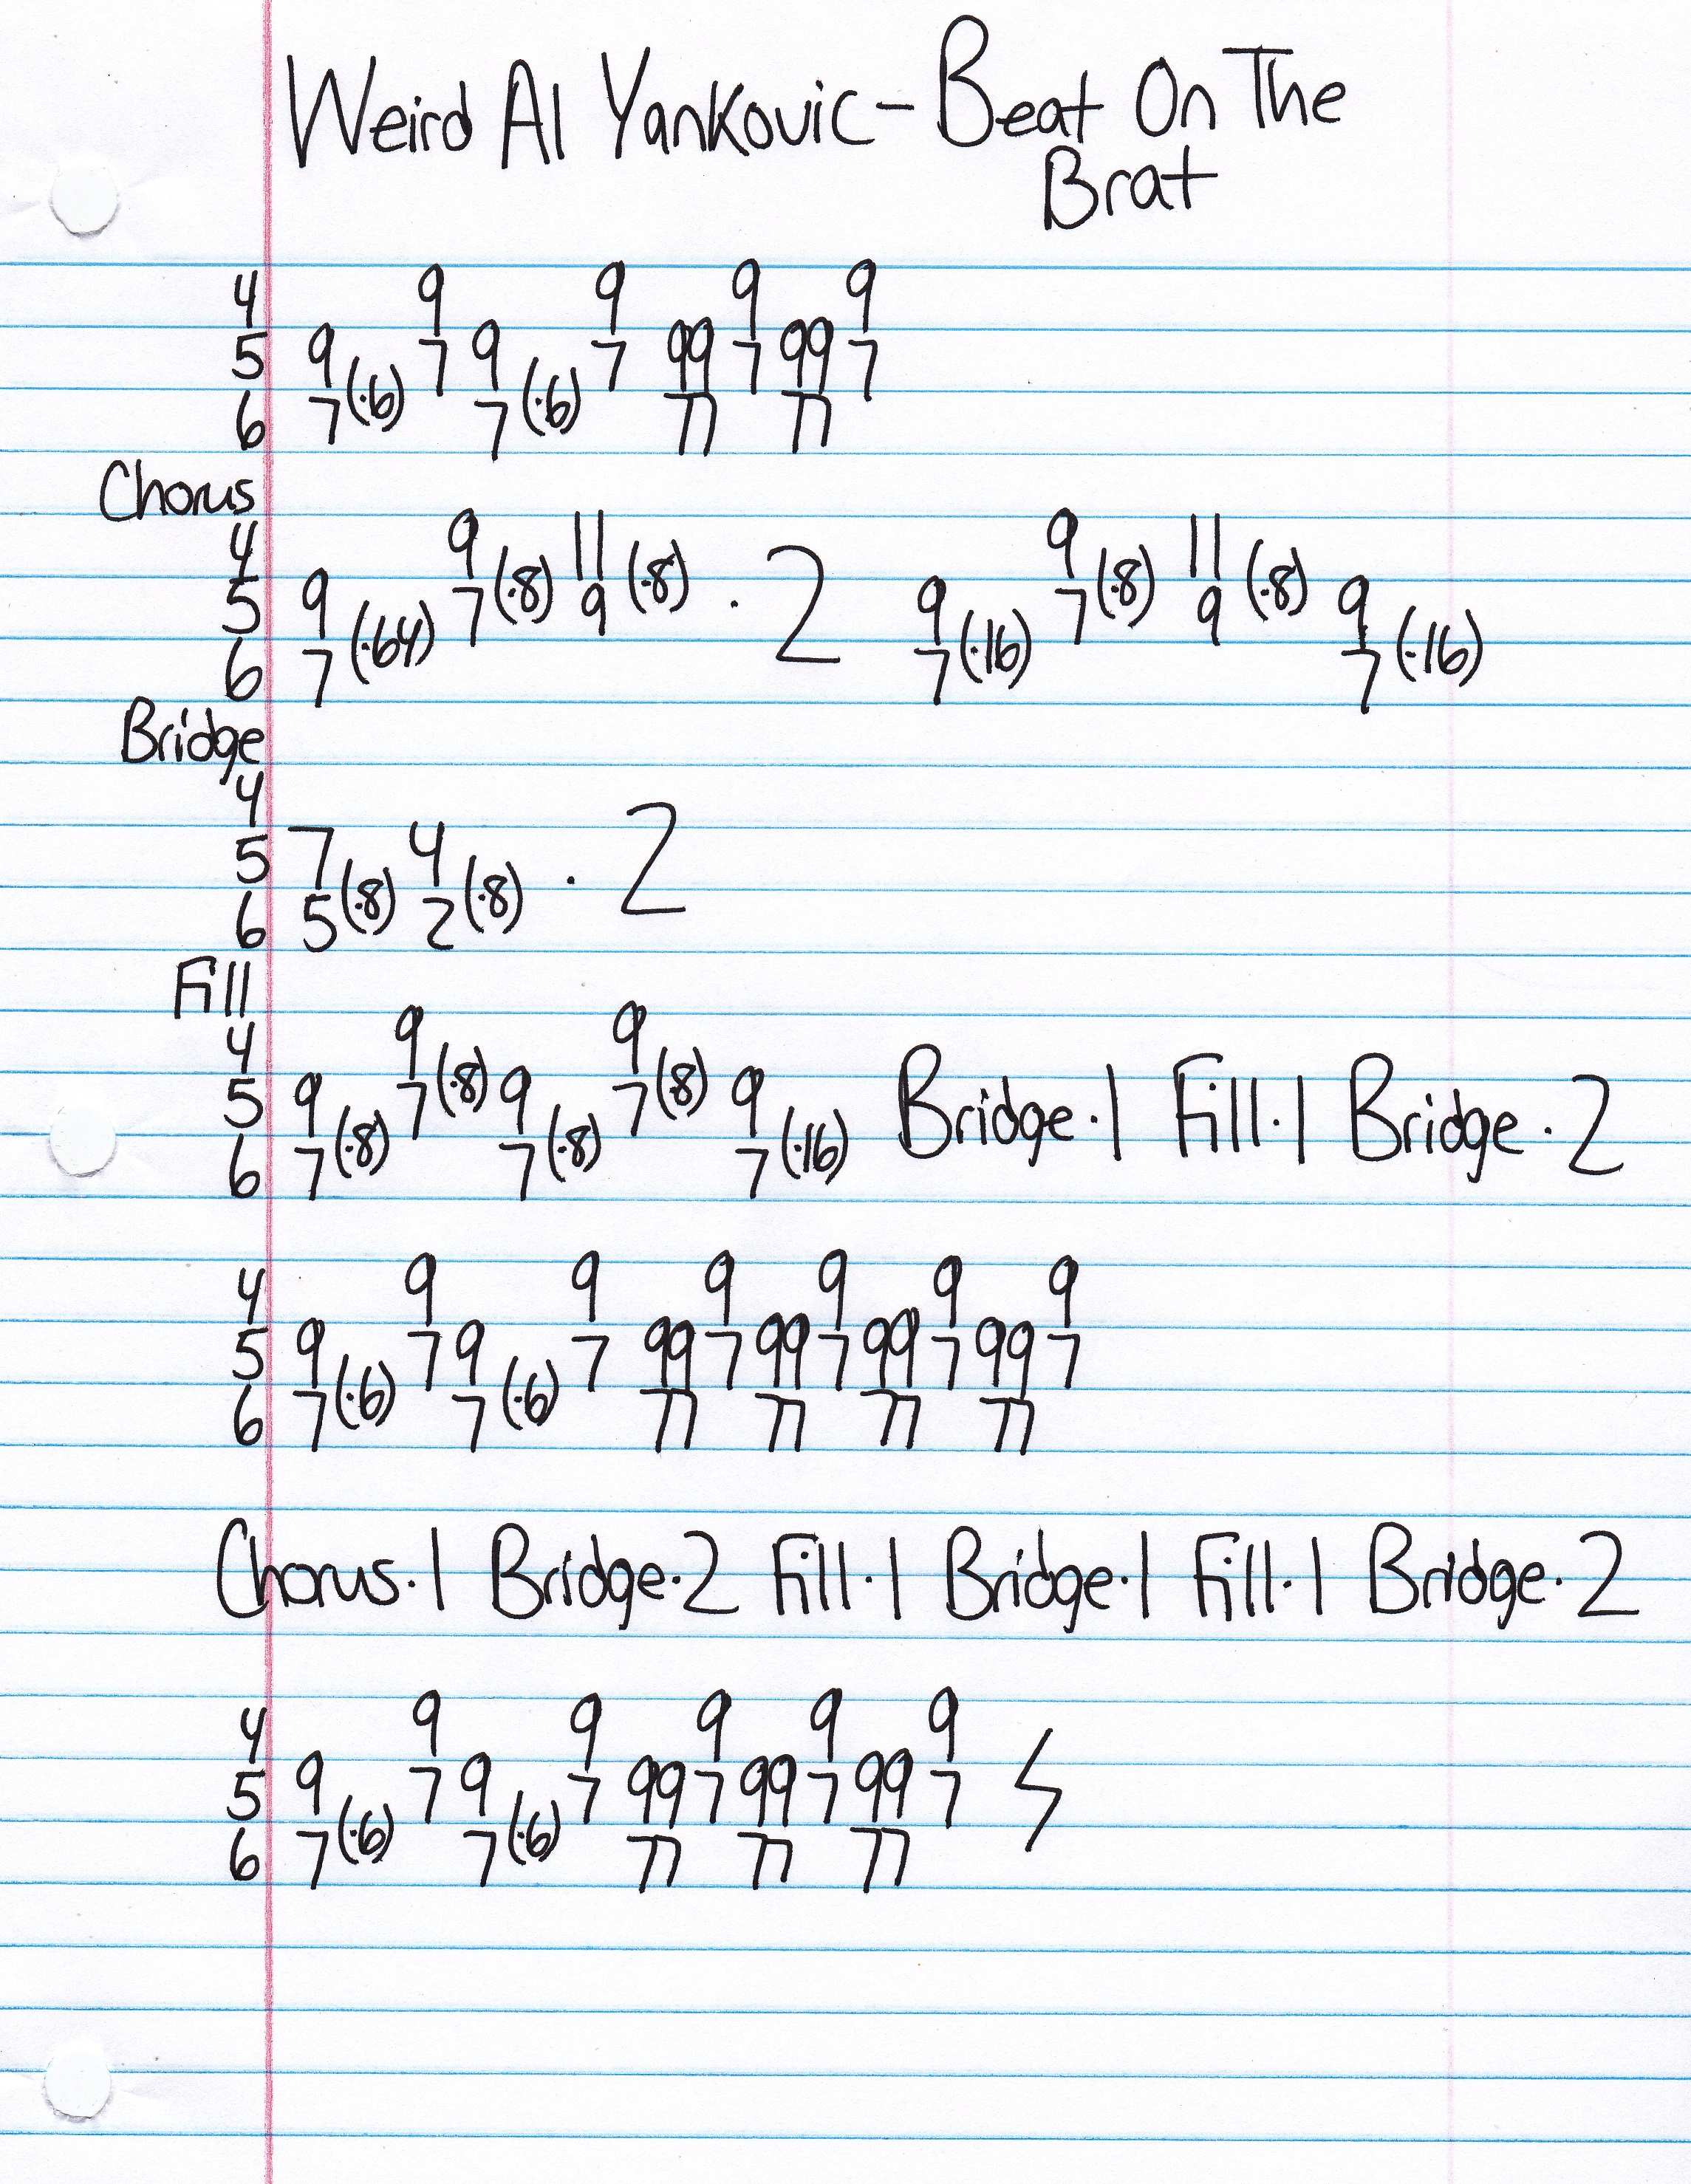 Weird Al Yankovic - Beat On The
Brat
4 9 9 9 9
5 9 7 9 7 99 7 99 7
6 7 (·6) 7 (·6) 77 77
Chorus
4 9 11 9 11
5 9 7 (·8) 9 (·8) · 2 9 7 (·8) 9 (·8) 9
6 7 (·64) 7 (·16) 7 (·16)
Bridge
4
5 7 4 · 2
6 5 (·8) 2 (·8)
Fill
4 9 9
5 9 7 (·8) 9 7 (·8) 9 Bridge · 1 Fill · 1 Bridge · 2
6 7 (·8) 7 (·8) 7 (·16)
4 9 9 9 9 9 9
5 9 7 9 7 99 7 99 7 99 7 99 7
6 7 (·6) 7 (·6) 77 77 77 77
Chorus · 1 Bridge · 2 Fill · 1 Bridge · 1 Fill · 1 Bridge · 2
4 9 9 9 9 9
5 9 7 9 7 99 7 99 7 99 7
6 7 (·6) 7 (·6) 77 77 77